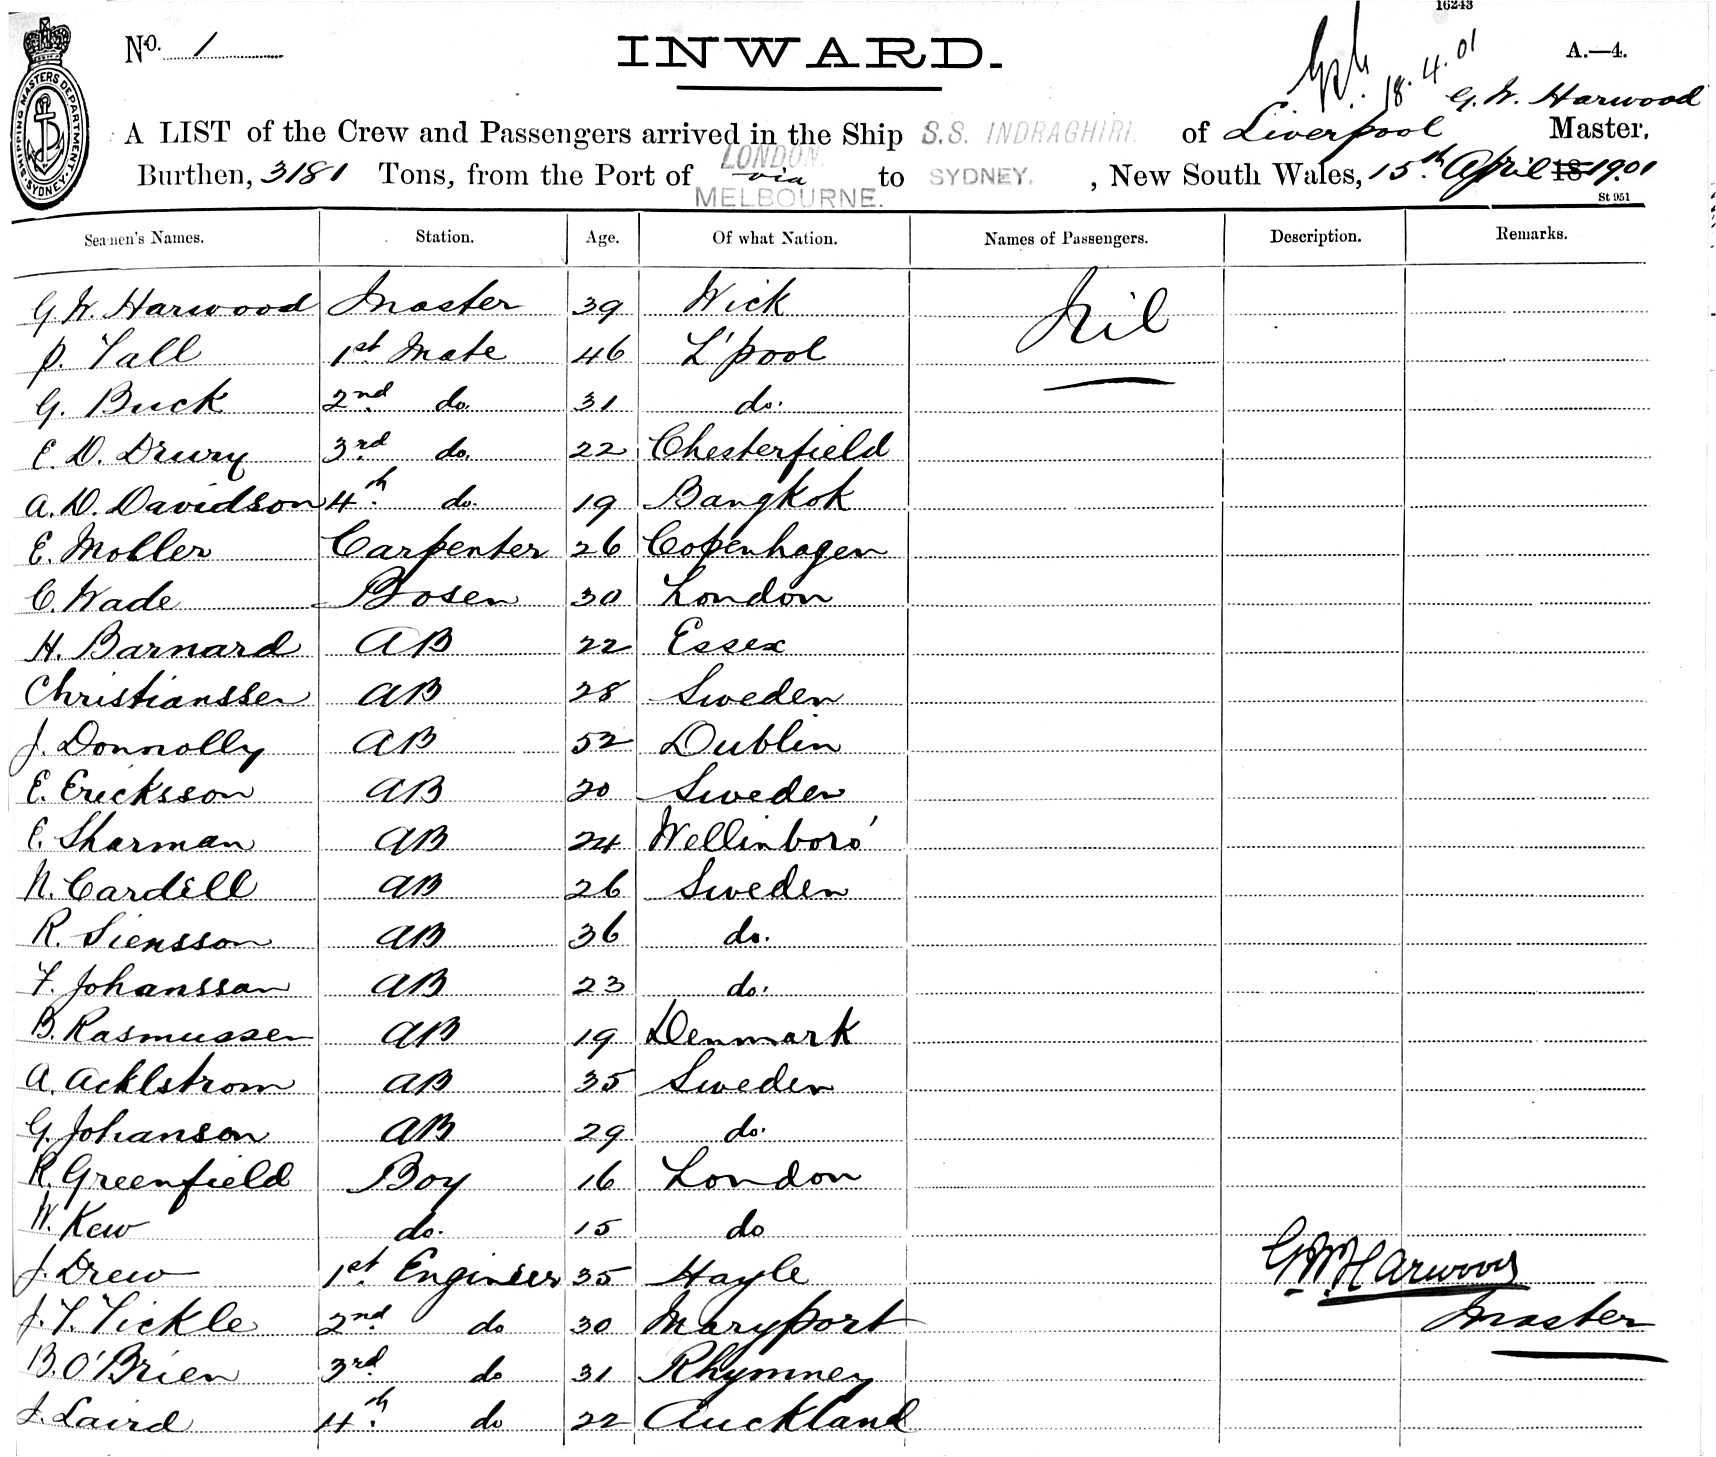 16243
No. 1
INWARD.
18.4.01
A.—4.
G. W. Harwood
A LIST of the Crew and Passengers arrived in the Ship S.S. INDRAGHIRI. of Liverpool Master,
Burthen, 3181 Tons, from the Port of LONDON via MELBOURNE. to SYDNEY. , New South Wales, 15th April 18 1901
St 951
SHIPPING MASTERS DEPARTMENT. SYDNEY.
Seamen's Names. Station. Age. Of what Nation. Names of Passengers. Description. Remarks.
G W. Harwood Master 39 Wick Nil
P. Tall 1st Mate 46 L'pool
G. Buck 2nd do. 31 do.
E. D. Drury 3rd do. 22 Chesterfield
A. D. Davidson 4th do. 19 Bangkok
E. Moller Carpenter 26 Copenhagen
C. Wade Bosen 30 London
H. Barnard AB 22 Essex
Christianssen AB 28 Sweden
J. Donnolly AB 52 Dublin
E. Ericksson AB 20 Sweden
E. Sharman AB 24 Wellinboro'
N. Cardell AB 26 Sweden
R. Siensson AB 36 do.
F. Johanssan AB 23 do.
B. Rasmussen AB 19 Denmark
A. Acklstrom AB 35 Sweden
G. Johanson AB 29 do.
R. Greenfield Boy 16 London
W. Kew do. 15 do
J. Drew 1st Engineer 35 Hayle G W Harwood
J. T. Tickle 2nd do 30 Maryport Master
B. O'Brien 3rd do 31 Rhymney
J. Laird 4th do 22 Auckland